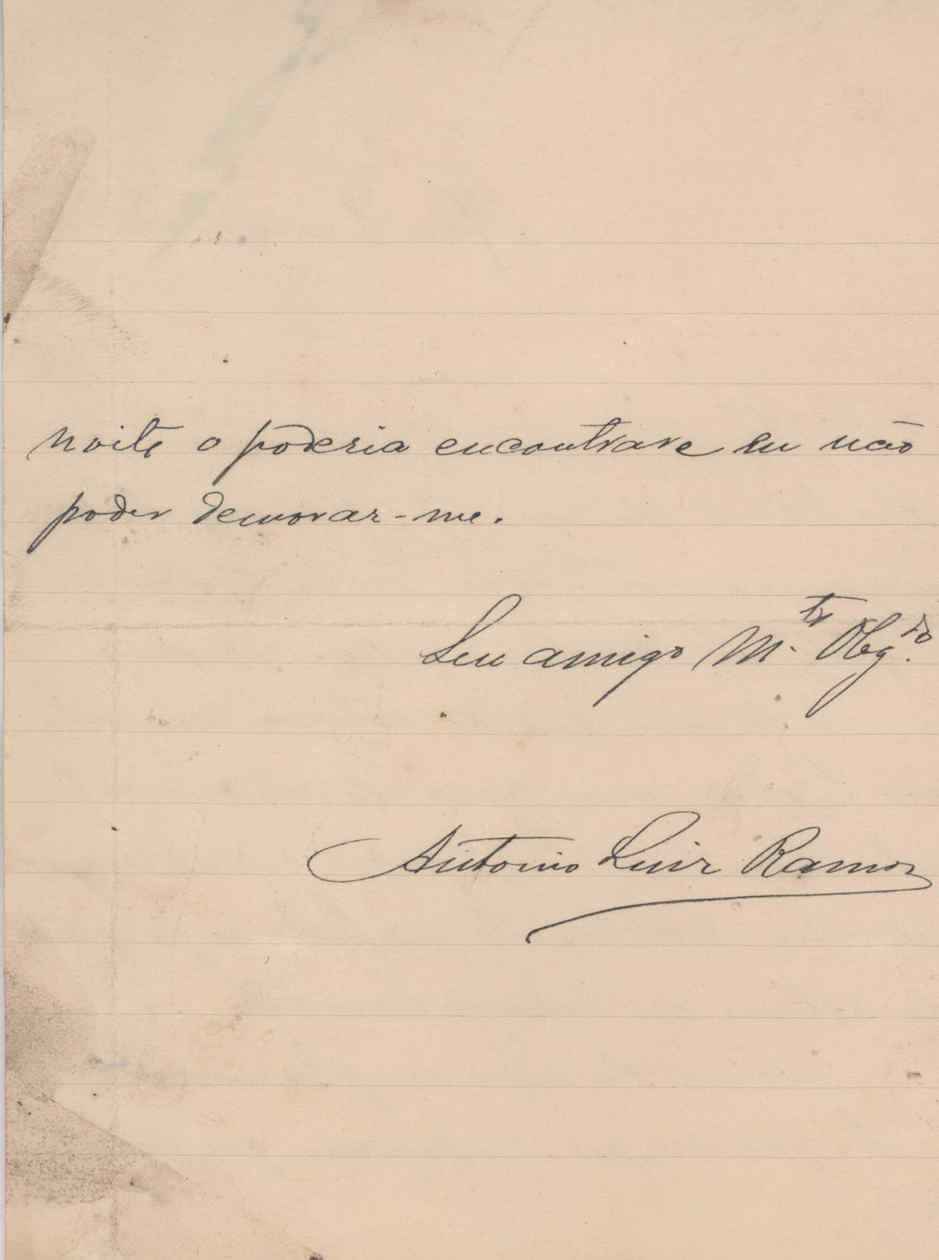 noite o poderia encontrar e eu não
poder demorar-me.
Seu amigo M.to Obg.do
Antonio Luiz Ramos